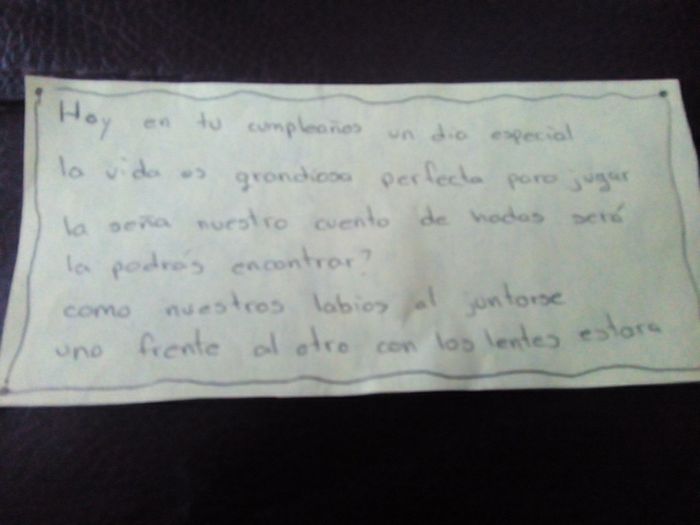 Hoy en tu cumpleaños un dia especial
la vida es grandiosa perfecta para jugar
la seña nuestro cuento de hadas será
la podrás encontrar?
como nuestros labios al juntarse
uno frente al otro con los lentes estara